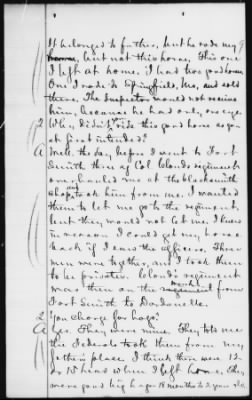 It belonged to father, but he rode my
, but not this horse. This one
I left at home. I had two good horses
One I rode to Springfield, Mo, and sold
there. The Inspector would not receive
him, because he had only one eye.
2 Why didn't ride this good horse as you
at first intended?
A Well, the day before I went to Fort
Smith three of Col Clouds regiment
overhauled me at the blacksmith
shop, and took him from me. I wanted
them to let me go to the regiment,
but they would not let me. I knew
in reason I could get my horse
back if I saw the officers. Three
men were together, and I took them
to be privates. Cloud's regiment
was then on the march from
Fort Smith to Dardanelle.
2 You charge for hogs?
A Yes. They were mine. They tell me
the Federals took them from my
father's place. I think there were 12
or 15 head when I left home. They
were good big hogs 18 months to 2 years old